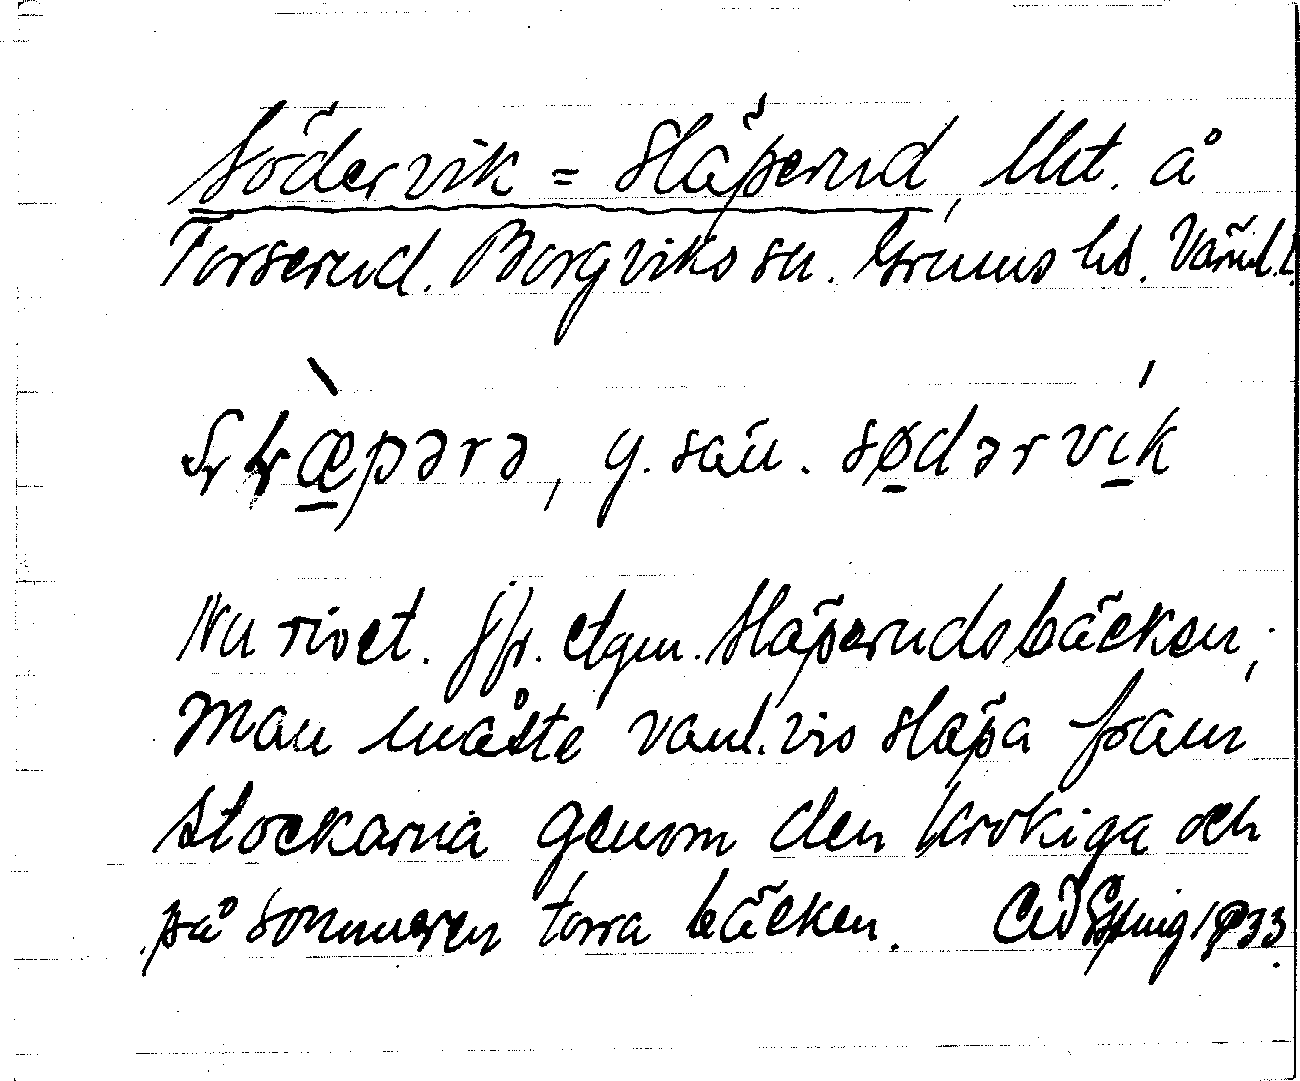 Södervik = Släperud, lht. å
Forserud. Borgviks sn. Grums hd. Värml. l.
slæpərə, g. sän. sødərvik
Nu rivet. Jfr. etym. Släperudsbäcken;
Man måste vanl.vis släpa fram
stockarna genom den krokiga och
på sommaren torra bäcken. 1933.